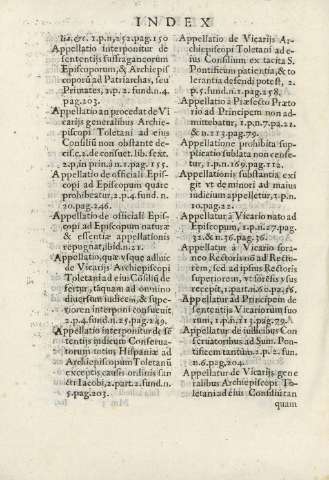 INDEX
lia, &c. 1.p.n,252.pag.150
Appellatio interponitur de
sententijs suffraganeorum
Episcoporum, & Archiepis
coporũ ad Patriarchas, seu
Primates, 2.p. 2. fund.n.4.
pag.203.
Appellatio an procedat de Vi
carijs generalibus Archie-
piscopi Toletani ad eius
Consiliũ non obstante de-
cis. c. 2. de consuet. lib. sext.
2.p. in prin. n.1. pag. 155.
Appellatio de officiali Epis-
copi ad Episcopum quare
prohibeatur, 2.p.4. fund. n.
20.pag.246.
Appellatio de officiali Epis-
copi ad Episcopum naturæ
& essentiæ appellationis
repugnat, ibid.n.21.
Appellatio, quæ vsque adhuc
de Vicarijs Archiepiscopi
Toletani ad eius Cõsiliũ de
fertur, tãquam ad omnino
diuersum iudicem, & supe-
riorem interponi consueuit
2.p.4.fund.n.25.pag.249.
Appellatio interponitur de se
tentijs iudicum Conserua-
torum totius Hispaniæ ad
Archiepiscopum Toletanũ
exceptis causis ordinis san
cti Iacobi, 2. part.2. fund.n.
5.pag.203.
Appellatio de Vicarijs Ar-
chiepiscopi Toletani ad e-
ius Consilium ex tacita S.
Pontificum patientia, & to
lerantia defendi potest. 2.
p.5.fund.n.1.pag.258.
Appellatio à Præfecto Præto
rio ad Principem non ad-
mittebatur, 1.p.n.7.pa.21.
& n.213.pag.79.
Appellatione prohibita sup-
plicatio sublata non cense-
tur, 1.p.n.169.pag.112.
Appellationis substantia exi
git vt de minori ad maius
iudicium appelletur, 1.p.n.
10.pag.22.
Appellatur à Vicario nato ad
Episcopum, 1.p.n.27.pag.
32. & n.36.pag.36.
Appellatur à Vicario fora-
neo Rectoris nõ ad Recto-
rem, sed ad ipsius Rectoris
superiorem, vt toties ys sus
recepit, 1.part.n.60.pa.56.
Appellatur ad Principem de
sententijs Vicariorum suo
rum, 1.p.n.213.pag.79.
Appellatur de iudicibus Con
seruatoribus ad Sum. Pon-
tificem tantum. 2.p. 2. fun.
n.6.pag,204.
Appellatur de Vicarijs gene
ralibus Archiepiscopi To-
letani ad eius Consiliũ tan
quam